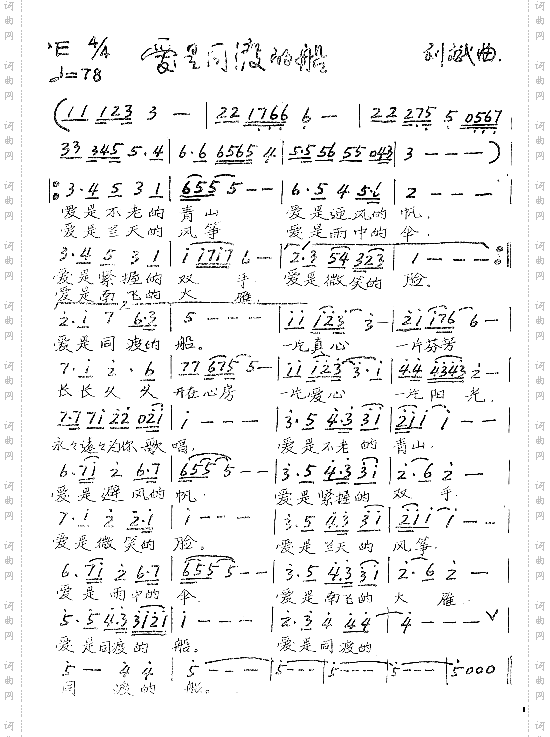 ♭E 4/4 爱是同渡的船 刘斌曲.
♩=78
(11 123 3 - | 22 1766 6 - | 22 275 5 0567
33 345 5·4 | 6·6 6565 4 | 5·5 56 55 043 | 3 - - - )
3·4 5 3 1 | 655 5 - - | 6·5 4 5·6 | 2 - - -
爱是不老的 青山 爱是迎风的 帆.
爱是兰天的 风筝 爱是雨中的 伞.
3·4 5 3 1 | i i7i7 6 - | 2·3 54 323 | 1 - - -
爱是紧握的 双 手 爱是微笑的 脸.
爱是南飞的 大 雁.
2·i 7 6·3 | 5 - - - | ii i23 3 - | 2i i76 6 -
爱是同渡的 船。 一片真心 一片芬芳
7·i 2·6 | 77 675 5 - | ii i23 3·i | 44 4343 2 -
长长久久 开在心房 一片爱心 一片阳光,
7·7 7i 22 02i | i - - - | 3·5 4·3 3i | 2ii i -
永永远远为你歌唱, 爱是不老的 青山.
6·7i 2 6·7 | 655 5 - - | 3·5 4·3 3i | 2·6 2 -
爱是避风的 帆. 爱是紧握的 双 手.
7·i 2 2·i | i - - - | 3·5 4·3 3i | 2ii i -
爱是微笑的 脸。 爱是兰天的 风筝.
6·7i 2 6·7 | 655 5 - - | 3·5 4·3 3i | 2·6 2 -
爱是雨中的 伞. 爱是南飞的 大 雁.
5·5 4·3 3i2i | i - - - | 2·3 4 44 | 4 - - - V
爱是同渡的 船。 爱是同渡的
5 - 4 4 | 5 - - - | 5 - - - | 5 - - - | 5000
同 渡的 船。
词曲网